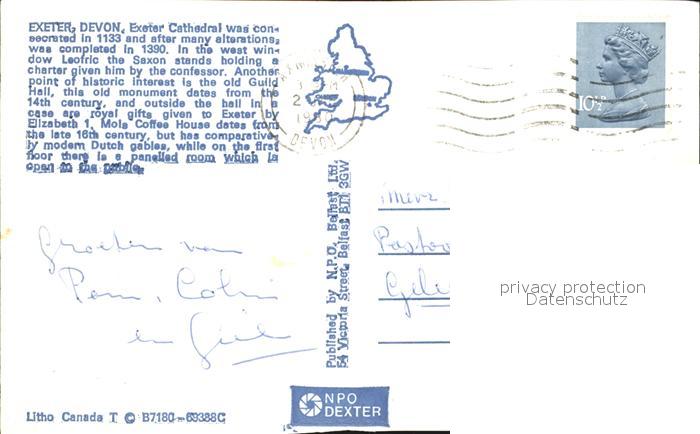 EXETER, DEVON, Exeter Cathedral was con-
secrated in 1133 and after many alterations,
was completed in 1390. In the west win-
dow Leofric the Saxon stands holding a
charter given him by the confessor. Another
point of historic interest is the old Guild
Hall, this old monument dates from the
14th century, and outside the hall in a
case are royal gifts given to Exeter by
Elizabeth 1, Mols Coffee House dates from
the late 16th century, but has comparative-
ly modern Dutch gables, while on the first
floor there is a panelled room which is
open to the public.
DEVON
10½P
Groeten van
Pam, Colin
en
Published by N.P.O. Belfast Ltd.
54 Victoria Street, Belfast BT1 3GW
Mevr.
Pastoo
privacy protection
Datenschutz
NPO
DEXTER
Litho Canada T © B7180-69388C